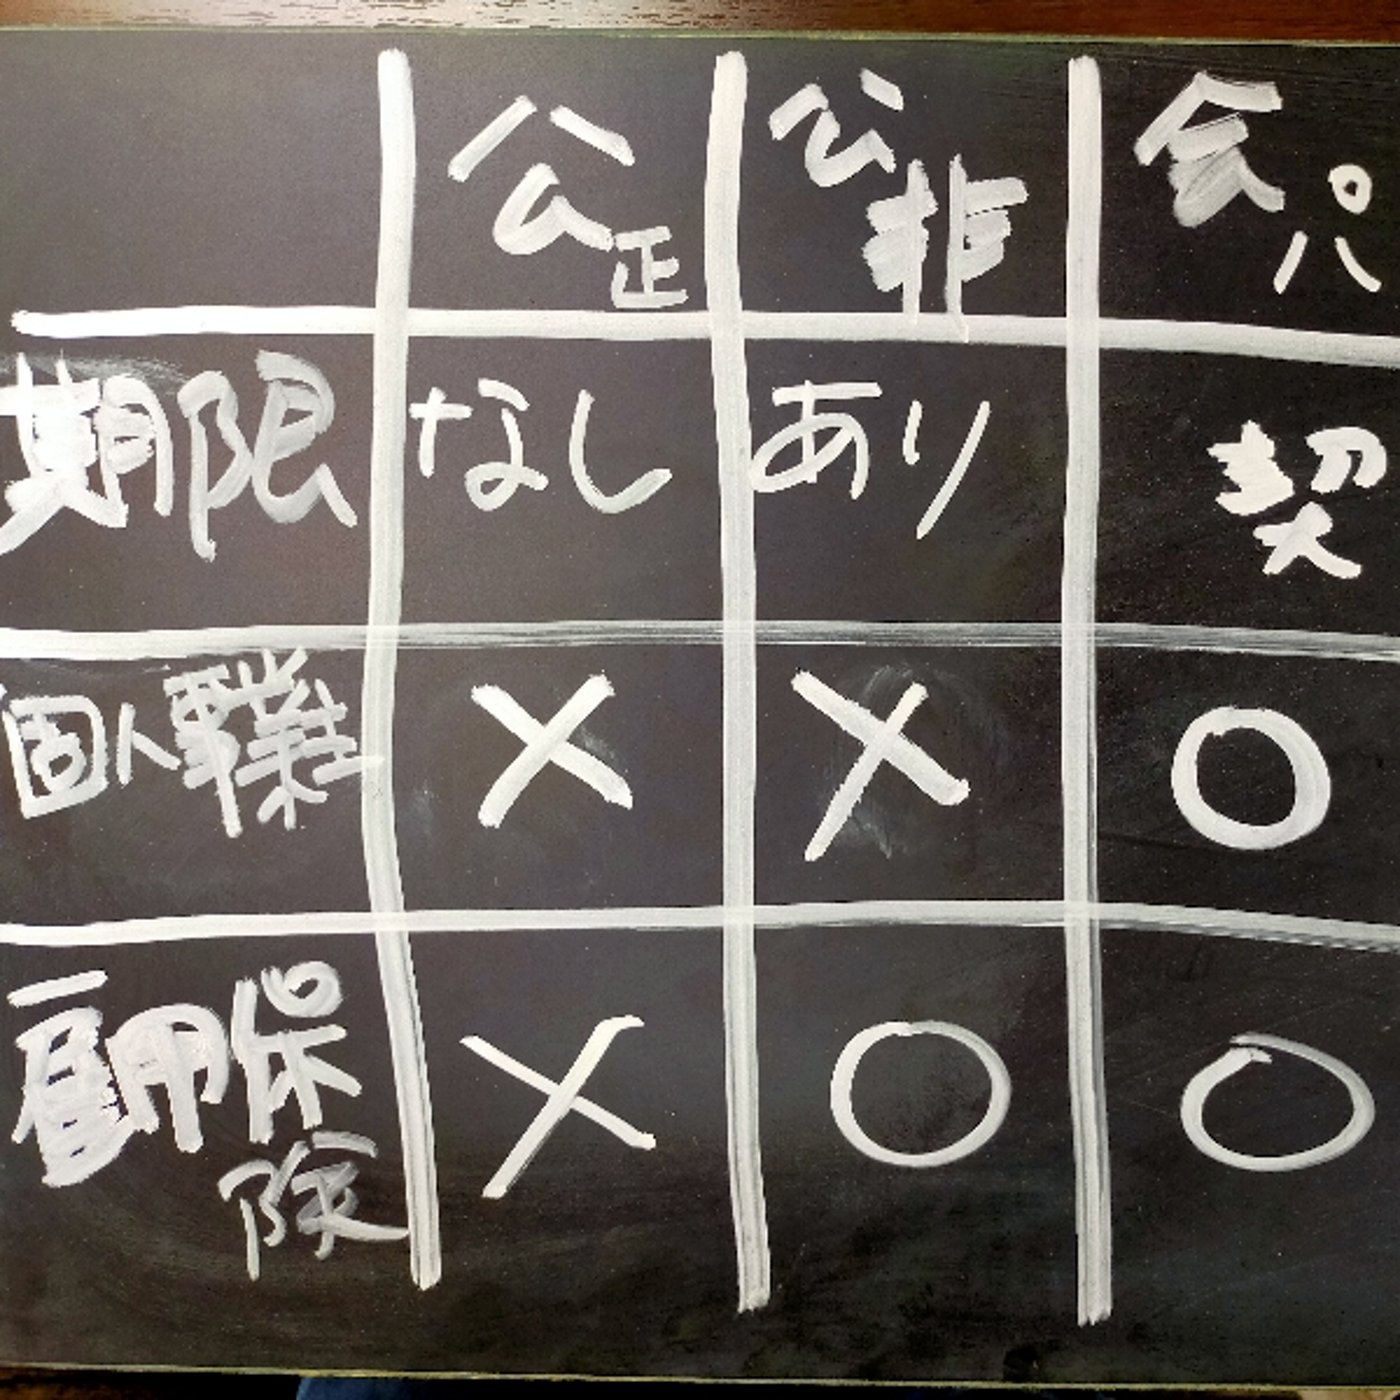 公正 公非 会パ
期限 なし あり 契
個人事業主 × × ○
雇用保険 × ○ ○